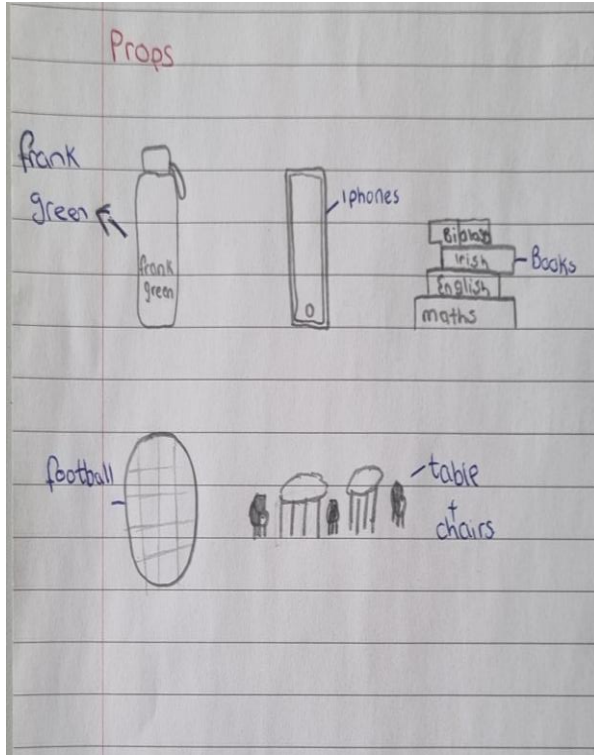 Props
frank
green
frank
green
iphones
Biology
irish
English
maths
Books
football
table
+
chairs